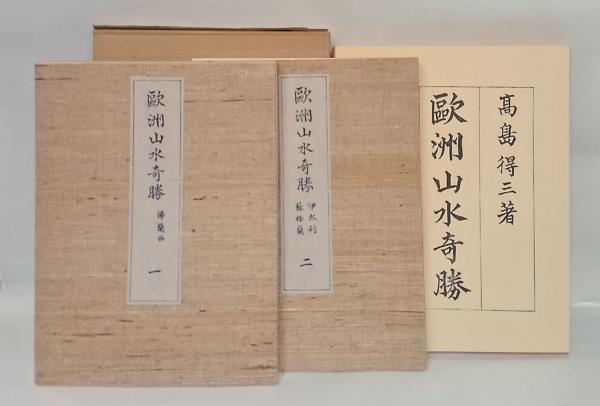 歐洲山水奇勝
佛蘭西
一
歐洲山水奇勝
伊太利
蘇格蘭
二
高島得三著
歐洲山水奇勝